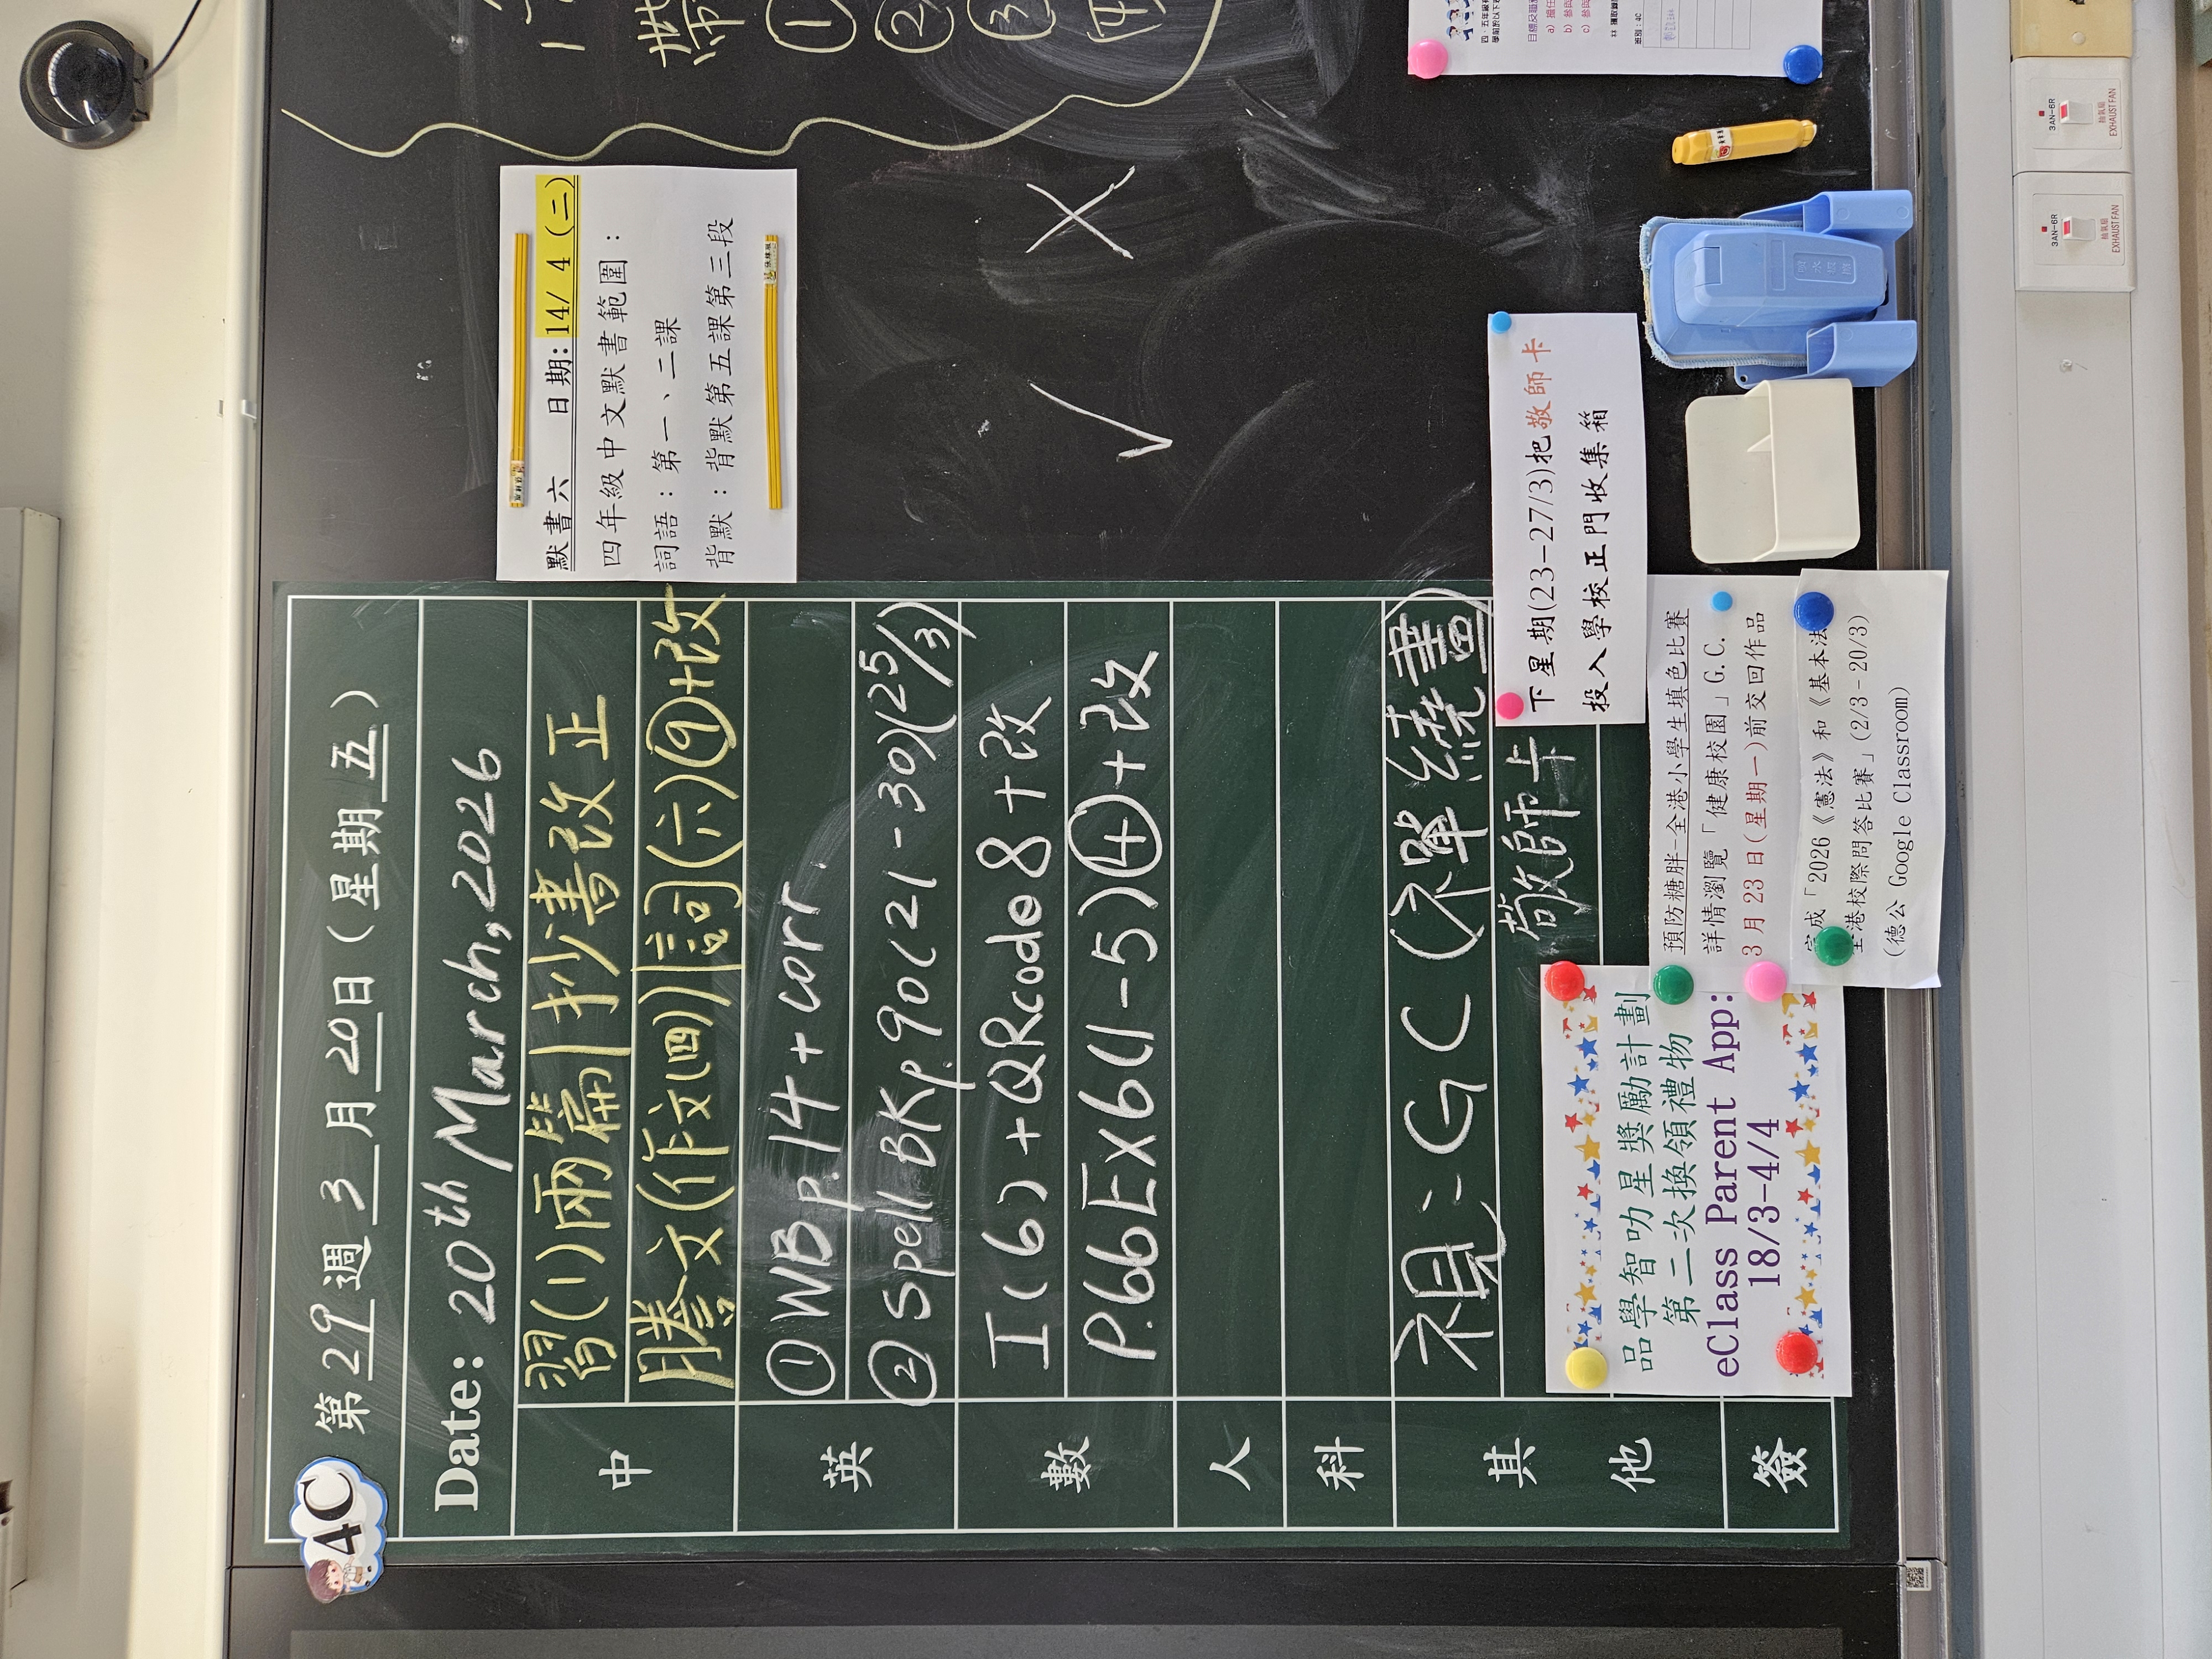 4C
第 29 週 3 月 20 日 ( 星 期 五 )
Date: 20th March, 2026
中
習(1)兩篇|抄書改正
謄文(作文四)|詞(六)⑨+改
英
① WB p.14 + corr.
② Spell BK p.90(21-30)(25/3)
數
I(6)+QRcode8+改
P.66Ex6(1-5)④+改
人
科
其他
視:GC(禪繞畫)
敬師卡
簽
默書六 日期:14/ 4 (二)
四年級中文默書範圍:
詞語:第一、二課
背默:背默第五課第三段
下星期(23-27/3)把敬師卡
投入學校正門收集箱
預防糖胖-全港小學生填色比賽
詳情瀏覽「健康校園」G.C.
3月23日(星期一)前交回作品
完成「2026《憲法》和《基本法
全港校際問答比賽」(2/3-20/3)
(德公 Google Classroom)
品學智叻星獎勵計劃
第二次換領禮物
eClass Parent App:
18/3-4/4
帶
① ② ③ ④
3AN-6R
抽氣扇
EXHAUST FAN
3AN-6R
抽氣扇
EXHAUST FAN